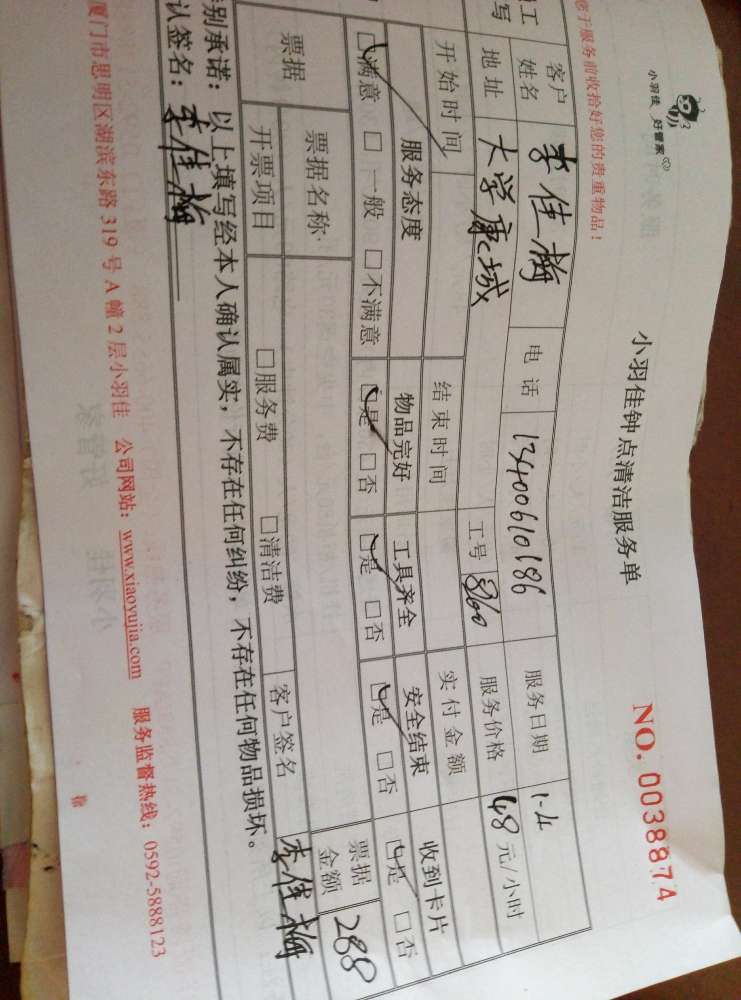 小羽佳 好管家
小羽佳钟点清洁服务单
NO. 0038874
您于服务前收拾好您的贵重物品!
工 客户姓名 李佳梅 电话 13400610186 服务日期 1-4
写 地址 大学康城 工号 8160 服务价格 48 元/小时
开始时间 结束时间 实付金额
服务态度 物品完好 工具齐全 安全结束 收到卡片
☑满意 □一般 □不满意 ☑是 □否 ☑是 □否 ☑是 □否 ☑是 □否
票据 票据名称: 票据金额 288
开票项目 □服务费 □清洁费 客户签名 李佳梅
别承诺: 以上填写经本人确认属实,不存在任何纠纷,不存在任何物品损坏。
认签名: 李佳梅
厦门市思明区湖滨东路 319 号 A 幢 2 层小羽佳 公司网站: www.xiaoyujia.com 服务监督热线: 0592-5888123